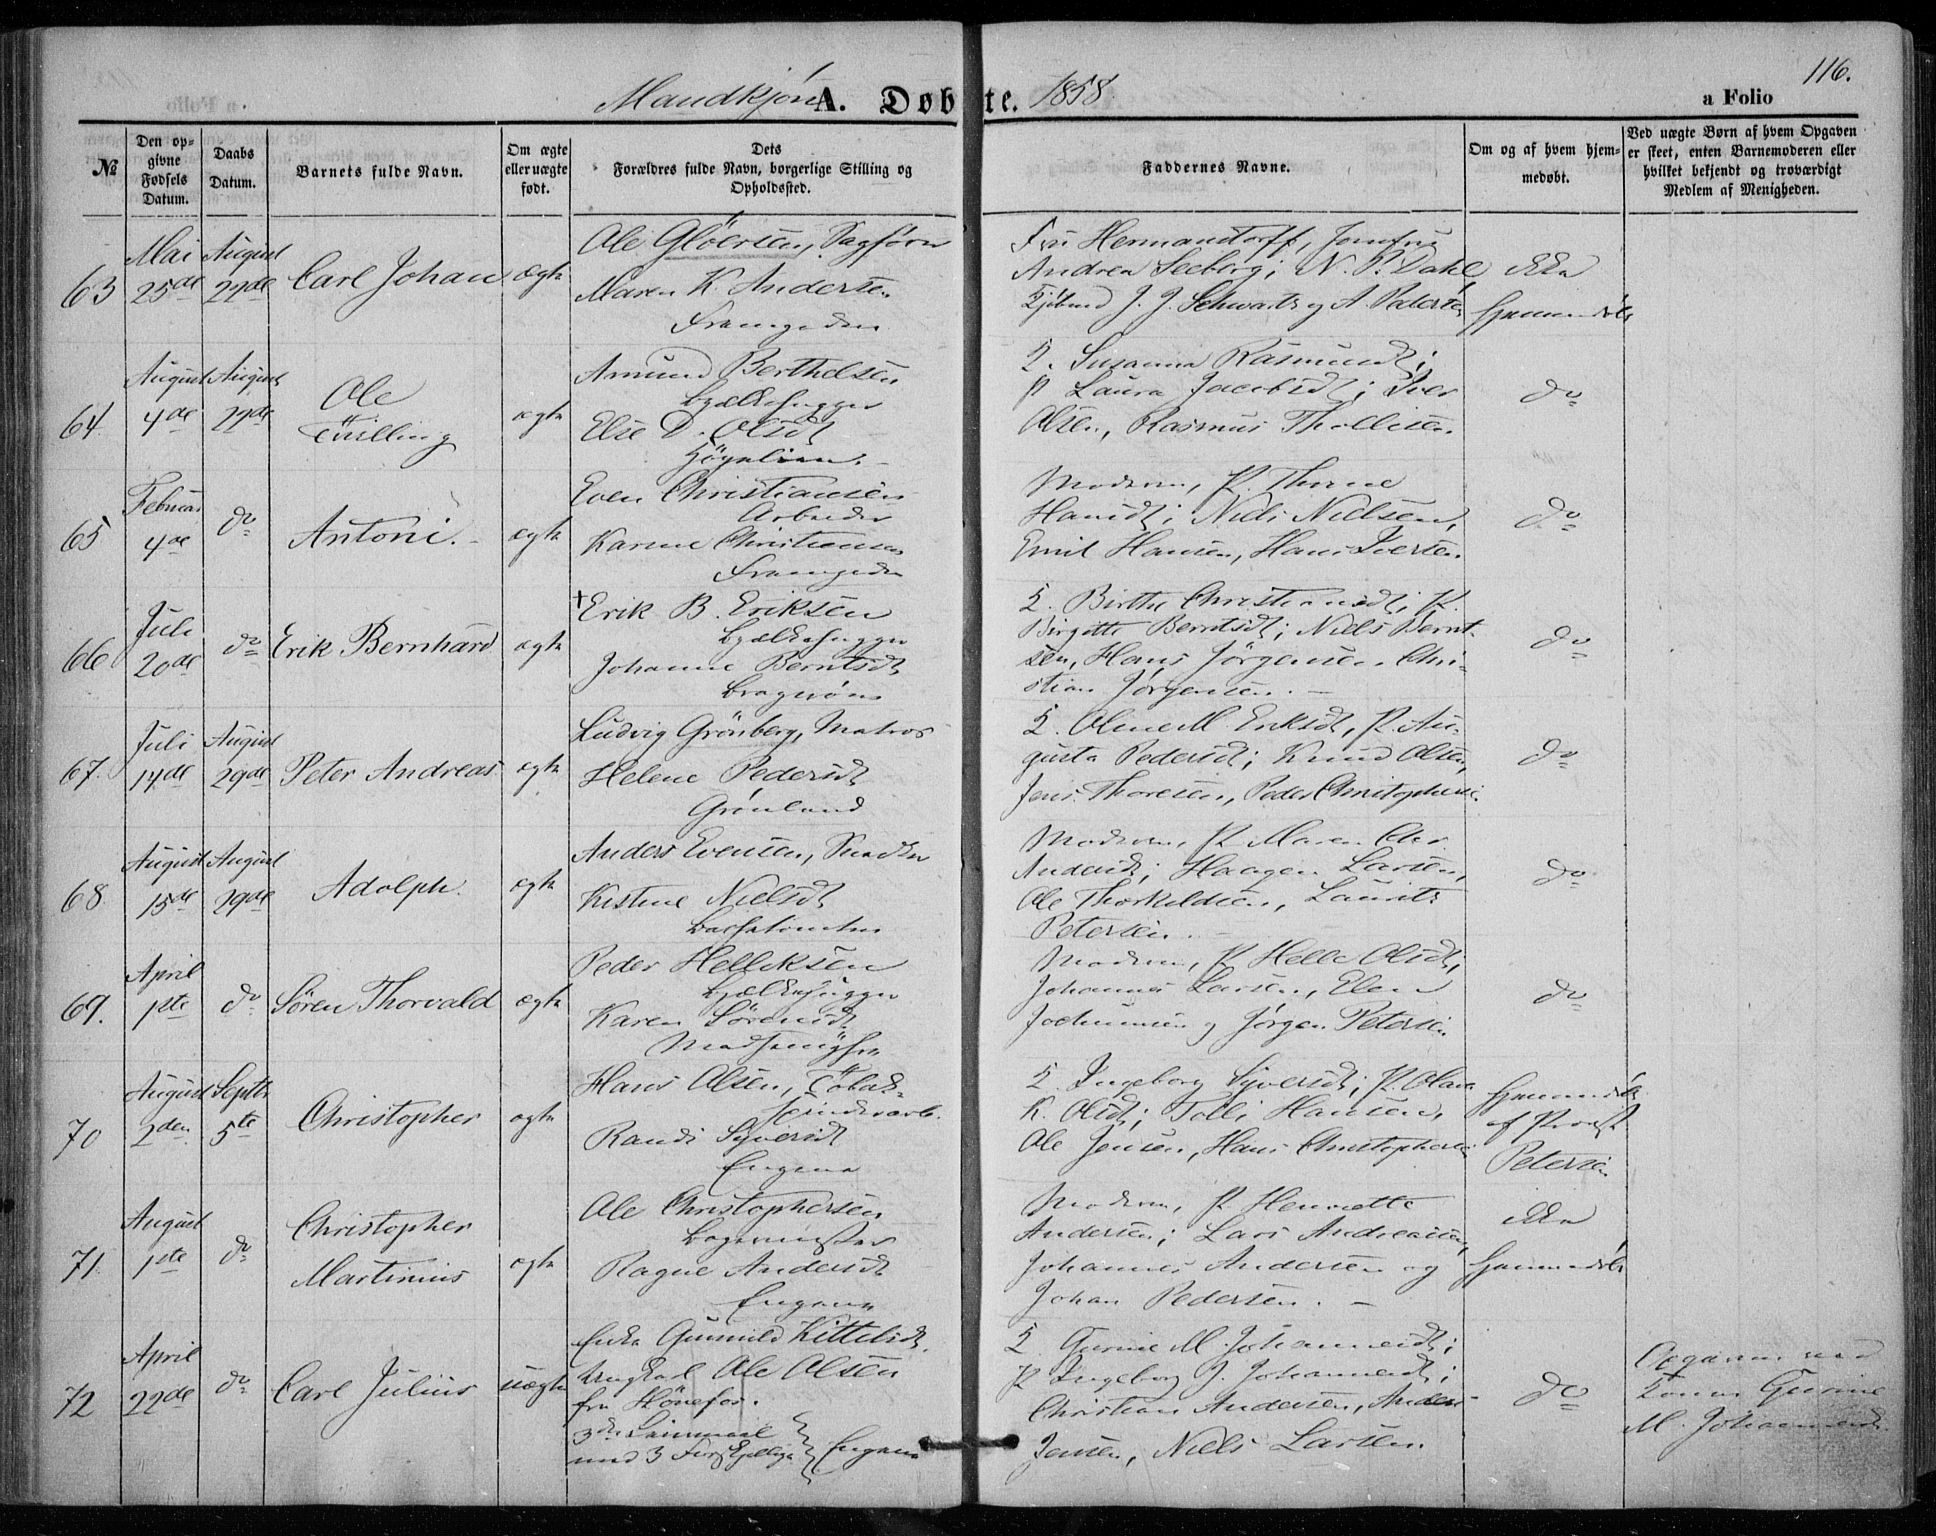 116.
Mandkjøn A. Døbte. 1858.
a Folio
№
Den opgivne Fødsels Datum.
Daabs Datum.
Barnets fulde Navn.
Om ægte eller uægte født.
Dets Forældres fulde Navn, borgerlige Stilling og Opholdssted.
Faddernes Navne.
Om og af hvem hjemmedøbt.
Ved uægte Børn af hvem Opgaven er skeet, enten Barnemoderen eller hvilket bekjendt og troværdigt Medlem af Menigheden.
63
Mai 25de
August 22de
Carl Johan
ægte
Ole Glöersen, Sagförer
Maren K. Andersen
Fru Hermanstorff, Jomfru
Andrea Seeberg; N. P. Dahl,
J. J. Schwartz og A. Pedersen
ikke
hjemmedöbt
64
August 4de
August 22de
Ole
Tvilling
ægte
Amund Berthelsen
Bjælkehugger
Else D. Olsdt
S. Susanna Rasmusdt;
P Laura Jacobsdt; Iver
Olsen, Rasmus Thollesen.
do
65
Februar 4de
do
Antoni.
ægte
Even Christiansen
Arbeider
Karine Christensen
Moderen, P. Thrine
Hansdt; Niels Nielsen,
Emil Hansen, Hans Iversen.
do
66
Juli 20de
do
Erik Bernhard
ægte
+Erik B. Eriksen
Bjælkehugger
Johanne Berntsdt
Bragernæs
S. Birthe Christiansdt; P.
Birgitte Berntsdt; Niels Bernt-
sen, Hans Jörgensen, Chri-
stian Jörgensen. –
do
67.
Juli 14de
August 29de
Peter Andreas
ægte
Ludvig Grönberg, Matros
Helene Pedersdt
Grönland
S. Oline M. Eriksdt, P. Au-
gusta Pedersdt; Knud Olsen,
Jens Thoresen, Peder Christophersen.
do
68
August 15de
August 29de
Adolph.
ægte
Anders Evensen, Snedker
Kistine Nielsdt
Moderen, P. Maren Chr.
Andersdt; Haagen Larsen,
Ole Thorkildsen, Laurits
Petersen. –
do
69.
April 1ste
do
Sören Thorvald
ægte
Peder Helleksen
Bjælkehugger
Karen Sörensdt
Moderen, P Helle Olsdt;
Johannes Larsen, Elen
Jochumsen og Jörgen Petersen.
do
70
August 2den
Septbr 5te
Christopher
ægte
Hans Olsen, Tobak-
spinderarb.
Randi Syversdt
Engene
S. Ingeborg Syversdt; P. Olava
K. Olsdt; Tolli Hansen,
Ole Jensen, Hans Christophersen
hjemmedöbt
af Provst
Petersen
71.
August 1ste
do
Christopher
Martinius
ægte
Ole Christophersen
Bagermester
Ragne Andersdt
Engene
Moderen, P Henriette
Andersen; Lars Andreassen,
Johannes Andersen og
Johan Pedersen. –
ikke
hjemmedöbt
72
April 22de
do
Carl Julius
uægte
Enke Gunnild Kittelsdt.
Ungkarl Ole Olsen
fra Hönefos.
3die Leiermaal
med 3 Forskjellige
Engene
S. Gurine M. Johannesdt;
P Ingeborg J. Johannesdt;
Christian Andersen, Anders
Jensen, Niels Larsen.
do
Opgaven ved
Gurine
M. Johannesdt.